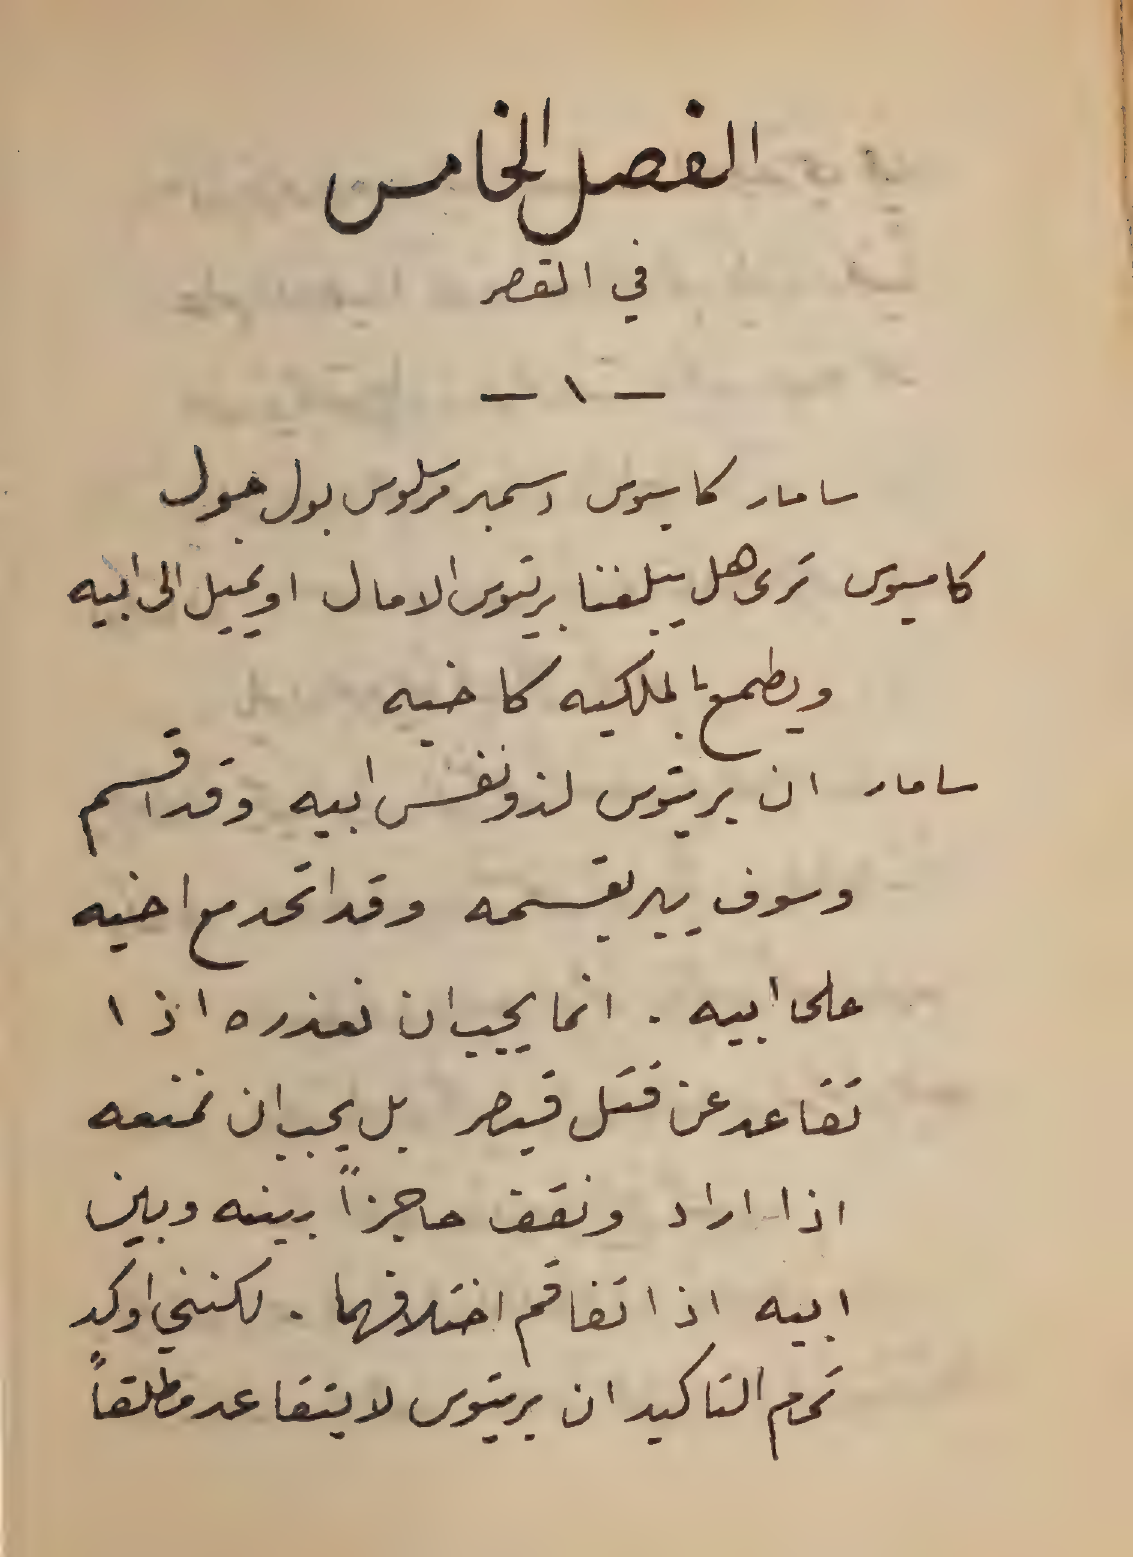 الفصل الخامس
في القصر
— ١ —
سامار كاسيوس دسمبر مرسلوس بول جول
كاسيوس ترى هل يبلغنا بريتوس الامال او يميل الى ابيه
ويطمع بالملكيه كاخيه
سامار ان بريتوس لذو نفس ابيه وقد اقسم
وسوف يبر بقسمه وقد اتحد مع اخيه
على ابيه . انما يجب ان نعذره اذا
تقاعد عن قتل قيصر بل يجب ان نمنعه
اذا اراد ونقف حاجزاً بينه وبين
ابيه اذا تفاقم اختلافهما . لكنني اوكد
التاكيد ان بريتوس لا يتقاعد مطلقاً